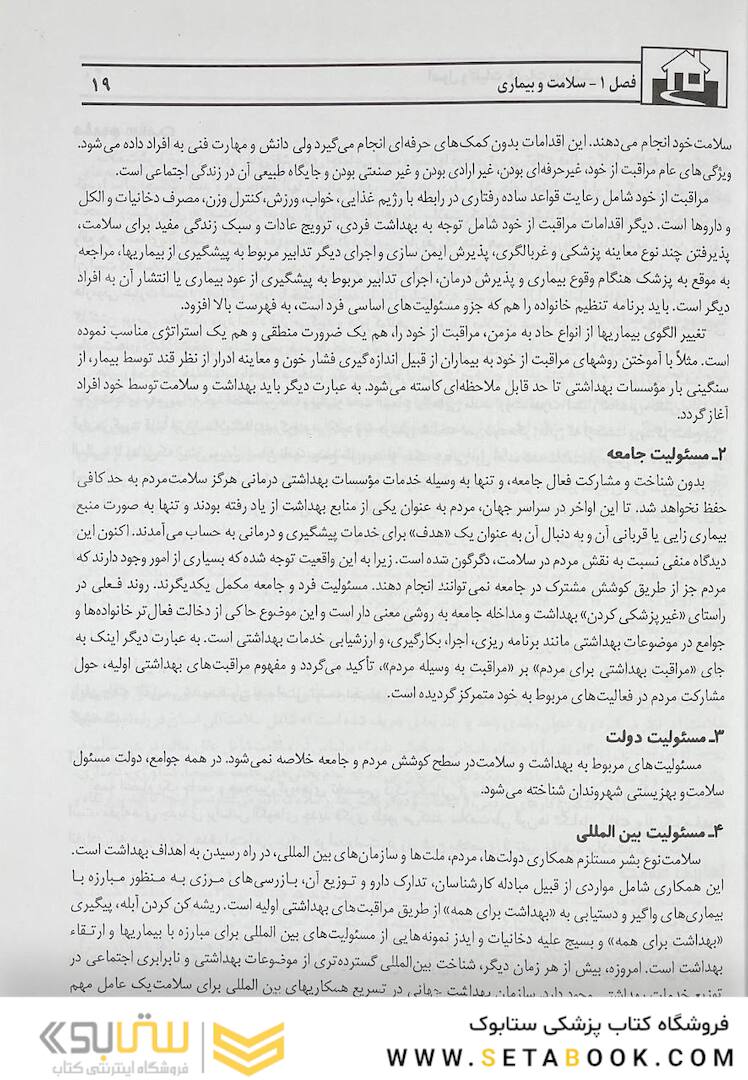 فصل ۱ - سلامت و بیماری
۱۹
سلامت خود انجام می‌دهند. این اقدامات بدون کمک‌های حرفه‌ای انجام می‌گیرد ولی دانش و مهارت فنی به افراد داده می‌شود.
ویژگی‌های عام مراقبت از خود، غیرحرفه‌ای بودن، غیر ارادی بودن و غیر صنعتی بودن و جایگاه طبیعی آن در زندگی اجتماعی است.
مراقبت از خود شامل رعایت قواعد ساده رفتاری در رابطه با رژیم غذایی، خواب، ورزش، کنترل وزن، مصرف دخانیات و الکل
و داروها است. دیگر اقدامات مراقبت از خود شامل توجه به بهداشت فردی، ترویج عادات و سبک زندگی مفید برای سلامت،
پذیرفتن چند نوع معاینه پزشکی و غربالگری، پذیرش ایمن سازی و اجرای دیگر تدابیر مربوط به پیشگیری از بیماریها، مراجعه
به موقع به پزشک هنگام وقوع بیماری و پذیرش درمان، اجرای تدابیر مربوط به پیشگیری از عود بیماری یا انتشار آن به افراد
دیگر است. باید برنامه تنظیم خانواده را هم که جزو مسئولیت‌های اساسی فرد است، به فهرست بالا افزود.
تغییر الگوی بیماریها از انواع حاد به مزمن، مراقبت از خود را، هم یک ضرورت منطقی و هم یک استراتژی مناسب نموده
است. مثلاً با آموختن روشهای مراقبت از خود به بیماران از قبیل اندازه‌گیری فشار خون و معاینه ادرار از نظر قند توسط بیمار، از
سنگینی بار مؤسسات بهداشتی تا حد قابل ملاحظه‌ای کاسته می‌شود. به عبارت دیگر باید بهداشت و سلامت توسط خود افراد
آغاز گردد.
۲ـ مسئولیت جامعه
بدون شناخت و مشارکت فعال جامعه، و تنها به وسیله خدمات مؤسسات بهداشتی درمانی هرگز سلامت مردم به حد کافی
حفظ نخواهد شد. تا این اواخر در سراسر جهان، مردم به عنوان یکی از منابع بهداشت از یاد رفته بودند و تنها به صورت منبع
بیماری زایی یا قربانی آن و به دنبال آن به عنوان یک «هدف» برای خدمات پیشگیری و درمانی به حساب می‌آمدند. اکنون این
دیدگاه منفی نسبت به نقش مردم در سلامت، دگرگون شده است. زیرا به این واقعیت توجه شده که بسیاری از امور وجود دارند که
مردم جز از طریق کوشش مشترک در جامعه نمی‌توانند انجام دهند. مسئولیت فرد و جامعه مکمل یکدیگرند. روند فعلی در
راستای «غیرپزشکی کردن» بهداشت و مداخله جامعه به روشی معنی دار است و این موضوع حاکی از دخالت فعال‌تر خانواده‌ها و
جوامع در موضوعات بهداشتی مانند برنامه ریزی، اجرا، بکارگیری، و ارزشیابی خدمات بهداشتی است. به عبارت دیگر اینک به
جای «مراقبت بهداشتی برای مردم» بر «مراقبت به وسیله مردم»، تأکید می‌گردد و مفهوم مراقبت‌های بهداشتی اولیه، حول
مشارکت مردم در فعالیت‌های مربوط به خود متمرکز گردیده است.
۳ـ مسئولیت دولت
مسئولیت‌های مربوط به بهداشت و سلامت در سطح کوشش مردم و جامعه خلاصه نمی‌شود. در همه جوامع، دولت مسئول
سلامت و بهزیستی شهروندان شناخته می‌شود.
۴ـ مسئولیت بین المللی
سلامت نوع بشر مستلزم همکاری دولت‌ها، مردم، ملت‌ها و سازمان‌های بین المللی، در راه رسیدن به اهداف بهداشت است.
این همکاری شامل مواردی از قبیل مبادله کارشناسان، تدارک دارو و توزیع آن، بازرسی‌های مرزی به منظور مبارزه با
بیماری‌های واگیر و دستیابی به «بهداشت برای همه» از طریق مراقبت‌های بهداشتی اولیه است. ریشه کن کردن آبله، پیگیری
«بهداشت برای همه» و بسیج علیه دخانیات و ایدز نمونه‌هایی از مسئولیت‌های بین المللی برای مبارزه با بیماریها و ارتقاء
بهداشت است. امروزه، بیش از هر زمان دیگر، شناخت بین‌المللی گسترده‌تری از موضوعات بهداشتی و نابرابری اجتماعی در
توزیع خدمات بهداشتی وجود دارد. سازمان بهداشت جهانی در تسریع همکاریهای بین المللی برای سلامت یک عامل مهم
فروشگاه کتاب پزشکی ستابوک
WWW.SETABOOK.COM
ستابوک
فروشگاه اینترنتی کتاب